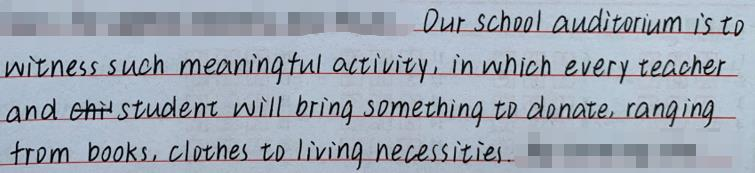 Our school auditorium is to
witness such meaningful activity, in which every teacher
and student will bring something to donate, ranging
from books, clothes to living necessities.